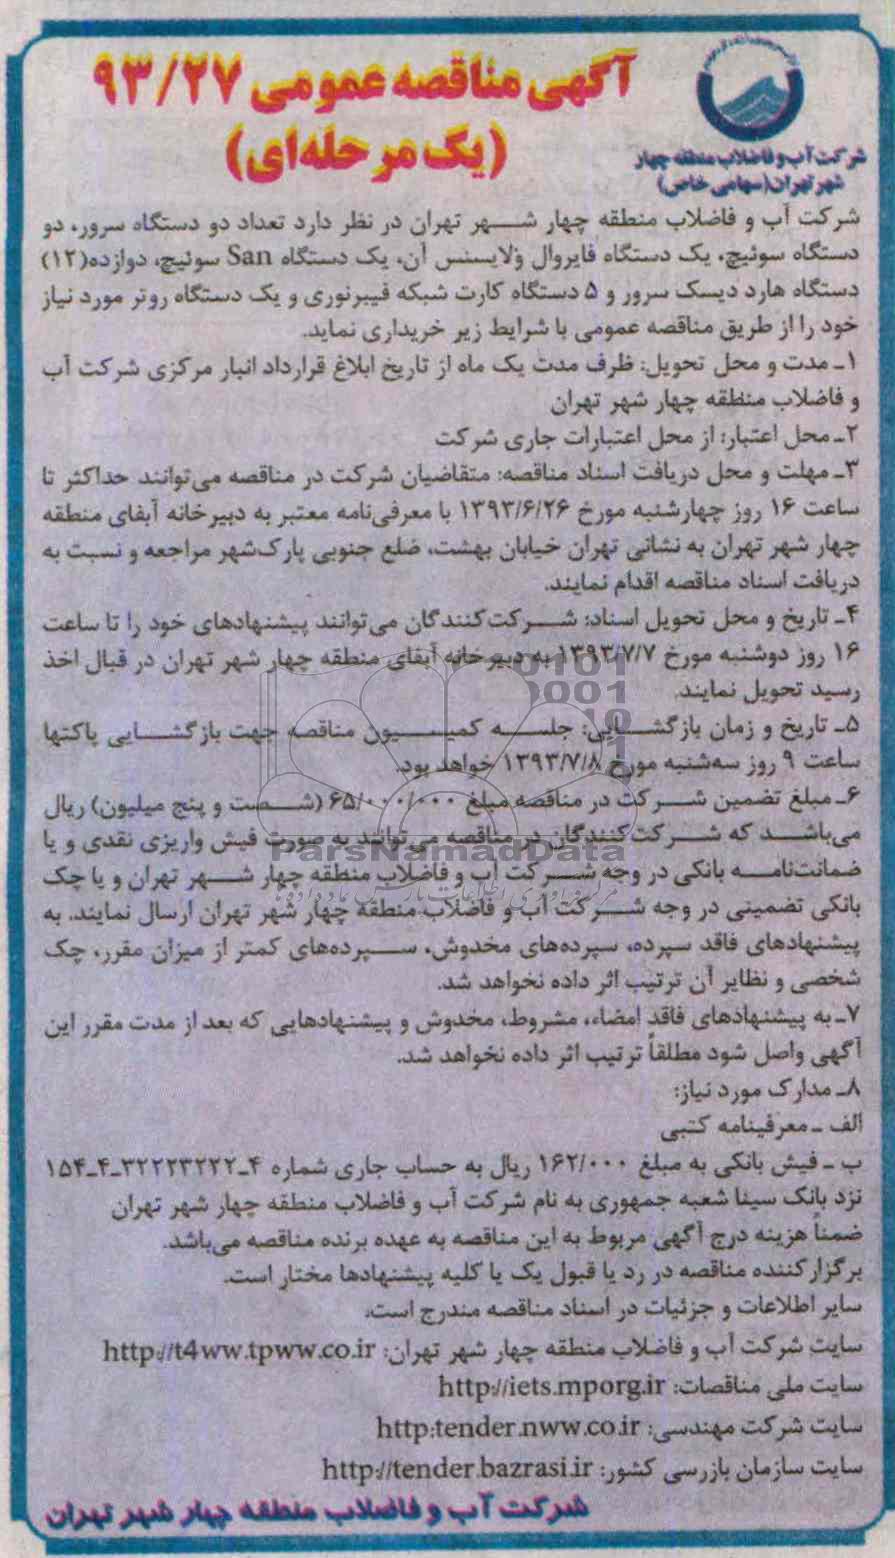 آگهی مناقصه عمومی ۹۳/۲۷
(یک مرحله‌ای)
شرکت آب و فاضلاب منطقه چهار
شهر تهران (سهامی خاص)
شرکت آب و فاضلاب منطقه چهار شهر تهران در نظر دارد تعداد دو دستگاه سرور، دو
دستگاه سوئیچ، یک دستگاه فایروال ولایسنس آن، یک دستگاه San سوئیچ، دوازده(۱۲)
دستگاه هارد دیسک سرور و ۵ دستگاه کارت شبکه فیبرنوری و یک دستگاه روتر مورد نیاز
خود را از طریق مناقصه عمومی با شرایط زیر خریداری نماید.
۱ـ مدت و محل تحویل: ظرف مدت یک ماه از تاریخ ابلاغ قرارداد انبار مرکزی شرکت آب
و فاضلاب منطقه چهار شهر تهران
۲ـ محل اعتبار: از محل اعتبارات جاری شرکت
۳ـ مهلت و محل دریافت اسناد مناقصه: متقاضیان شرکت در مناقصه می‌توانند حداکثر تا
ساعت ۱۶ روز چهارشنبه مورخ ۱۳۹۳/۶/۲۶ با معرفی‌نامه معتبر به دبیرخانه آبفای منطقه
چهار شهر تهران به نشانی تهران خیابان بهشت، ضلع جنوبی پارک‌شهر مراجعه و نسبت به
دریافت اسناد مناقصه اقدام نمایند.
۴ـ تاریخ و محل تحویل اسناد: شرکت‌کنندگان می‌توانند پیشنهادهای خود را تا ساعت
۱۶ روز دوشنبه مورخ ۱۳۹۳/۷/۷ به دبیرخانه آبفای منطقه چهار شهر تهران در قبال اخذ
رسید تحویل نمایند.
۵ـ تاریخ و زمان بازگشایی: جلسه کمیسیون مناقصه جهت بازگشایی پاکتها
ساعت ۹ روز سه‌شنبه مورخ ۱۳۹۳/۷/۸ خواهد بود.
۶ـ مبلغ تضمین شرکت در مناقصه مبلغ ۶۵/۰۰۰/۰۰۰ (شصت و پنج میلیون) ریال
می‌باشد که شرکت‌کنندگان در مناقصه می‌توانند به صورت فیش واریزی نقدی و یا
ParsNamadData
ضمانت‌نامه بانکی در وجه شرکت آب و فاضلاب منطقه چهار شهر تهران و یا چک
بانکی تضمینی در وجه شرکت آب و فاضلاب منطقه چهار شهر تهران ارسال نمایند. به
پیشنهادهای فاقد سپرده، سپرده‌های مخدوش، سپرده‌های کمتر از میزان مقرر، چک
شخصی و نظایر آن ترتیب اثر داده نخواهد شد.
۷ـ به پیشنهادهای فاقد امضاء، مشروط، مخدوش و پیشنهادهایی که بعد از مدت مقرر این
آگهی واصل شود مطلقاً ترتیب اثر داده نخواهد شد.
۸ـ مدارک مورد نیاز:
الف ـ معرفینامه کتبی
ب ـ فیش بانکی به مبلغ ۱۶۲/۰۰۰ ریال به حساب جاری شماره ۴ـ۳۲۲۲۳۲۲۲ـ۴ـ۱۵۴
نزد بانک سینا شعبه جمهوری به نام شرکت آب و فاضلاب منطقه چهار شهر تهران
ضمناً هزینه درج آگهی مربوط به این مناقصه به عهده برنده مناقصه می‌باشد.
برگزارکننده مناقصه در رد یا قبول یک یا کلیه پیشنهادها مختار است.
سایر اطلاعات و جزئیات در اسناد مناقصه مندرج است.
سایت شرکت آب و فاضلاب منطقه چهار شهر تهران: http://t4ww.tpww.co.ir
سایت ملی مناقصات: http://iets.mporg.ir
سایت شرکت مهندسی: http:tender.nww.co.ir
سایت سازمان بازرسی کشور: http://tender.bazrasi.ir
شرکت آب و فاضلاب منطقه چهار شهر تهران